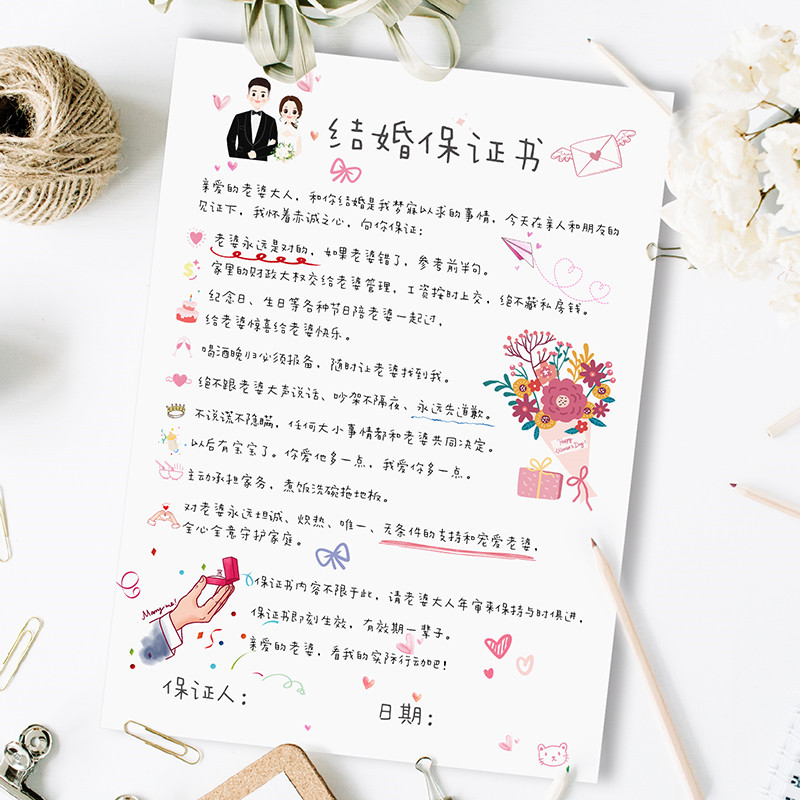 结婚保证书
亲爱的老婆大人，和你结婚是我梦寐以求的事情，今天在亲人和朋友的
见证下，我怀着赤诚之心，向你保证：
老婆永远是对的，如果老婆错了，参考前半句。
家里的财政大权交给老婆管理，工资按时上交，绝不藏私房钱。
纪念日、生日等各种节日陪老婆一起过，
给老婆惊喜给老婆快乐。
喝酒晚归必须报备，随时让老婆找到我。
绝不跟老婆大声说话、吵架不隔夜、永远先道歉。
不说谎不隐瞒，任何大小事情都和老婆共同决定。
以后有宝宝了。你爱他多一点，我爱你多一点。
Happy
Women's Day!
主动承担家务，煮饭洗碗拖地板。
对老婆永远坦诚、炽热、唯一、无条件的支持和宠爱老婆，
全心全意守护家庭。
Marry me!
保证书内容不限于此，请老婆大人年审来保持与时俱进，
保证书即刻生效，有效期一辈子。
亲爱的老婆，看我的实际行动吧！
保证人：
日期：